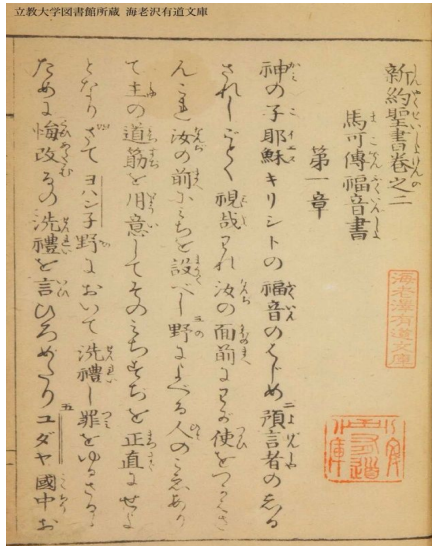 立教大学図書館所蔵 海老沢有道文庫
新約聖書巻之二
馬可傳福音書
第一章
神の子耶穌キリシトの福音のはじめ預言者のしる
されしごとく視哉われ汝の面前にわが使をつかはさ
んこれ汝の前にみちを設べし野によべる人のこゑあり
て主の道筋を用意してそのみちすぢを正直にせよ
となりさてヨハン子野において洗禮し罪をゆるさるゝ
ために悔改るの洗禮を言ひろめたりユダヤ國中お
海老澤有道文庫